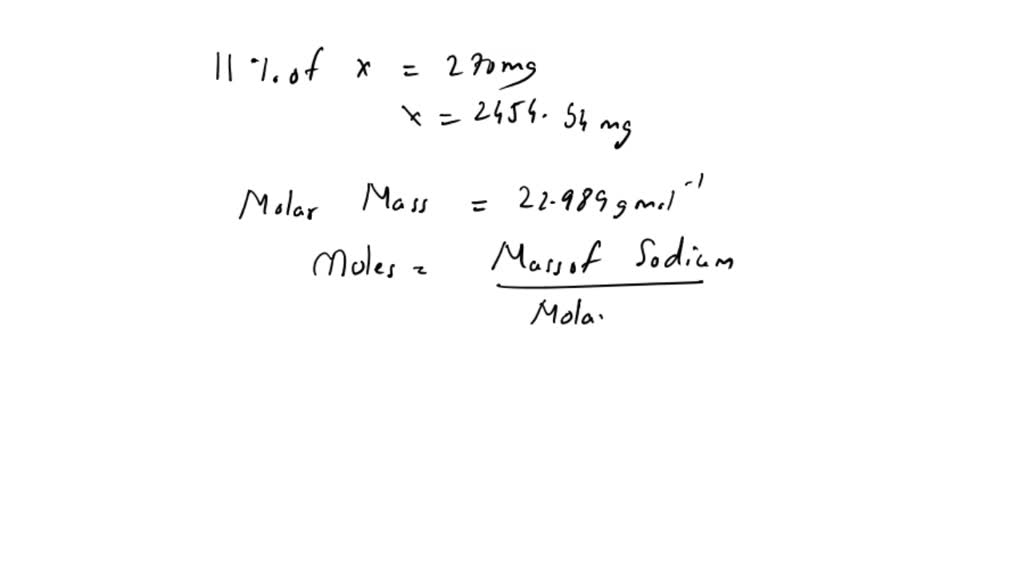 11 %. of x = 270mg
x = 2454. 54 mg
Molar Mass = 22.989 g mol⁻¹
Moles = Mass of Sodium
Mola.